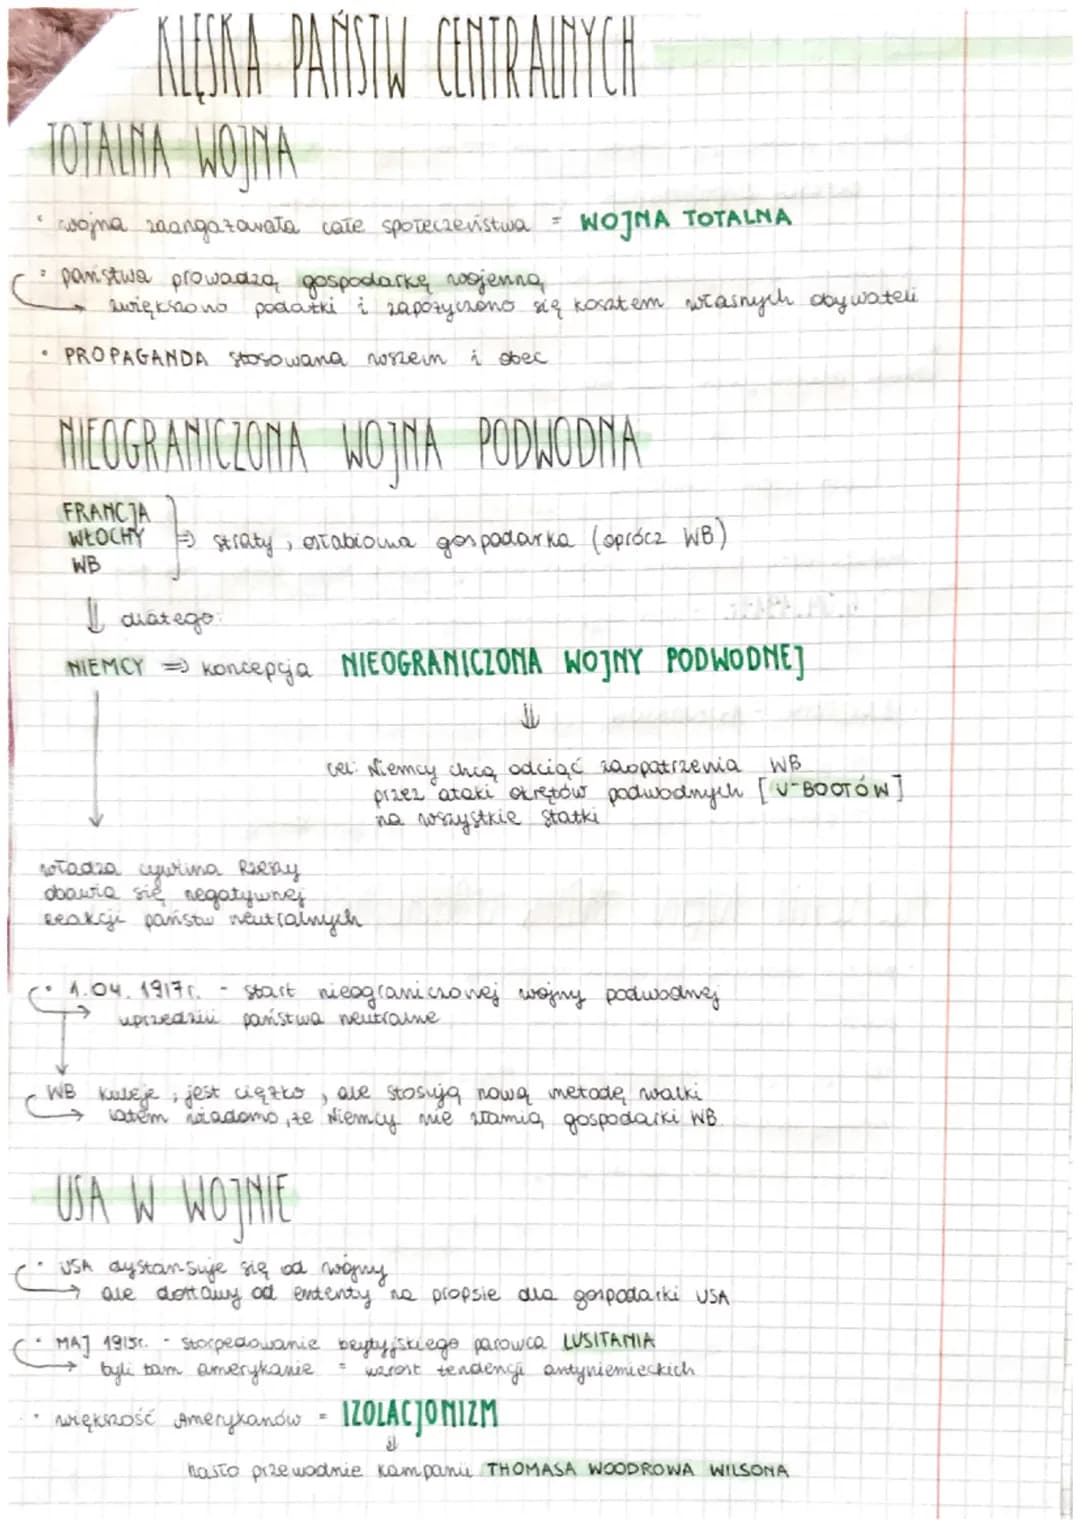 KLĘSKA PAŃSTW CENTRALNYCH
TOTALNA WOJNA
• wojna zaangażowała całe społeczeństwa = WOJNA TOTALNA
• państwa prowadzą gospodarkę wojenną
→ zwiększono podatki i zapożyczono się kosztem własnych obywateli
• PROPAGANDA stosowana wszem i obec
NIEOGRANICZONA WOJNA PODWODNA
FRANCJA
WŁOCHY ⇒ straty, osłabiona gospodarka (oprócz WB)
WB
⇓ dlatego:
NIEMCY ⇒ koncepcja NIEOGRANICZONA WOJNY PODWODNEJ
⇓
cel: Niemcy chcą odciąć zaopatrzenia WB
przez ataki okrętów podwodnych [U-BOOTÓW]
na wszystkie statki
władza cywilna Rzeszy
obawia się negatywnej
reakcji państw neutralnych
• 1.04.1917r. - start nieograniczonej wojny podwodnej
→ uprzedzili państwa neutralne
WB kuleje, jest ciężko, ale stosują nową metodę walki
→ zatem wiadomo, że Niemcy nie złamią gospodarki WB
USA W WOJNIE
• USA dystansuje się od wojny
→ ale dostawy od ententy na propsie dla gospodarki USA
• MAJ 1915r. - storpedowanie brytyjskiego parowca LUSITANIA
→ byli tam amerykanie = wzrost tendencji antyniemieckich
• większość Amerykanów = IZOLACJONIZM
⇓
hasło przewodnie kampanii THOMASA WOODROWA WILSONA